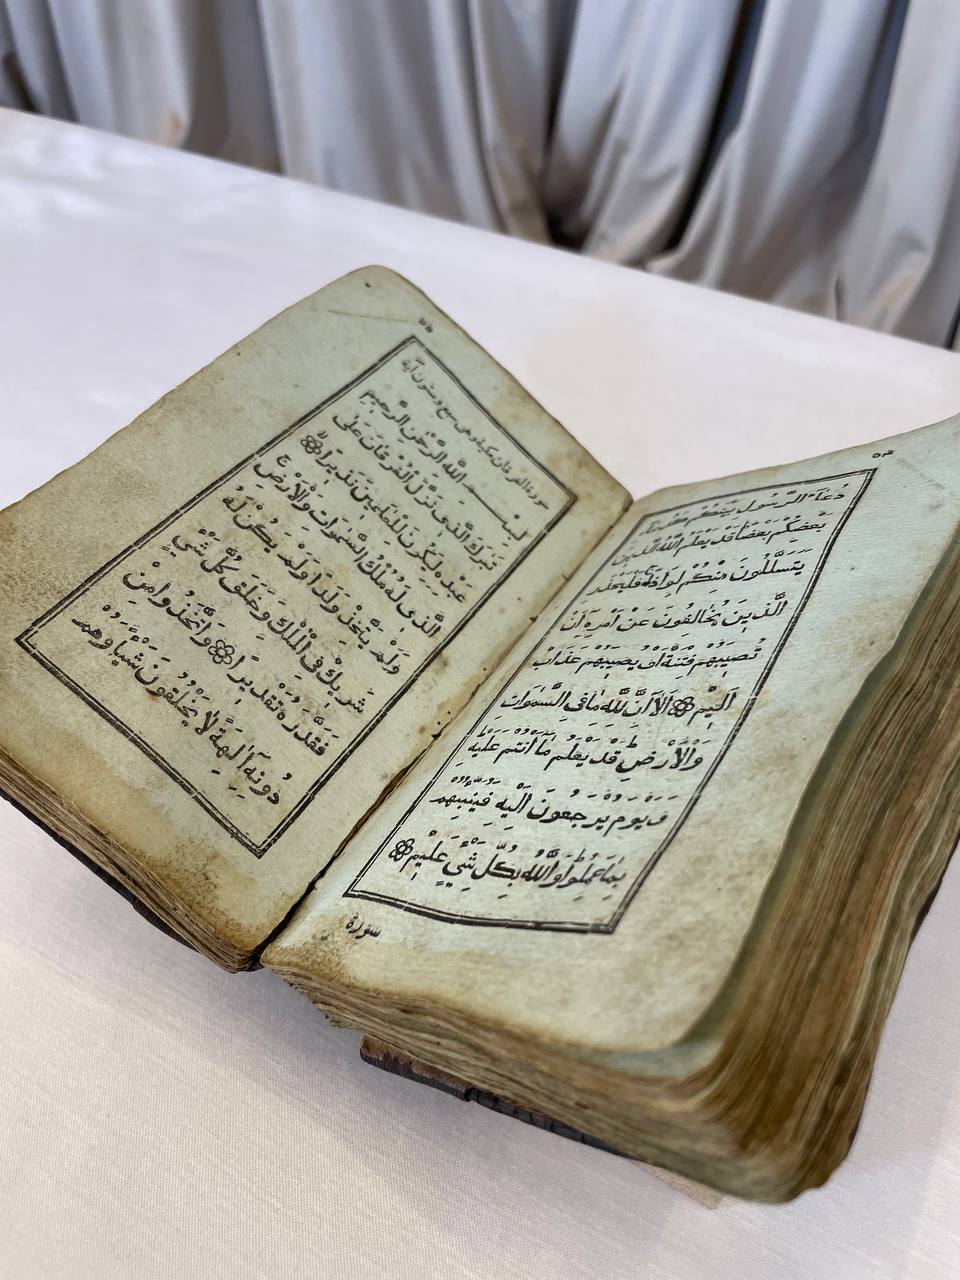 دُعَاءَ الرَّسُولِ بَيْنَكُمْ كَدُعَاءِ
بَعْضِكُمْ بَعْضًا قَدْ يَعْلَمُ اللهُ الَّذِينَ
يَتَسَلَّلُونَ مِنْكُمْ لِوَاذًا فَلْيَحْذَرِ
الَّذِينَ يُخَالِفُونَ عَنْ أَمْرِهِ أَنْ
تُصِيبَهُمْ فِتْنَةٌ أَوْ يُصِيبَهُمْ عَذَابٌ
أَلِيمٌ أَلَا إِنَّ لِلَّهِ مَا فِي السَّمٰوَاتِ
وَالْأَرْضِ قَدْ يَعْلَمُ مَا أَنْتُمْ عَلَيْهِ
وَيَوْمَ يُرْجَعُونَ إِلَيْهِ فَيُنَبِّئُهُمْ
بِمَا عَمِلُوا وَاللَّهُ بِكُلِّ شَيْءٍ عَلِيمٌ
سورة
٥٥
سورة الفرقان مكية وهي سبع وسبعون آية
بِسْمِ اللَّهِ الرَّحْمٰنِ الرَّحِيمِ
تَبَارَكَ الَّذِي نَزَّلَ الْفُرْقَانَ عَلَى
عَبْدِهِ لِيَكُونَ لِلْعَالَمِينَ نَذِيرًا
الَّذِي لَهُ مُلْكُ السَّمٰوَاتِ وَالْأَرْضِ
وَلَمْ يَتَّخِذْ وَلَدًا وَلَمْ يَكُنْ لَهُ
شَرِيكٌ فِي الْمُلْكِ وَخَلَقَ كُلَّ شَيْءٍ
فَقَدَّرَهُ تَقْدِيرًا وَاتَّخَذُوا مِنْ
دُونِهِ آلِهَةً لَا يَخْلُقُونَ شَيْئًا وَهُمْ